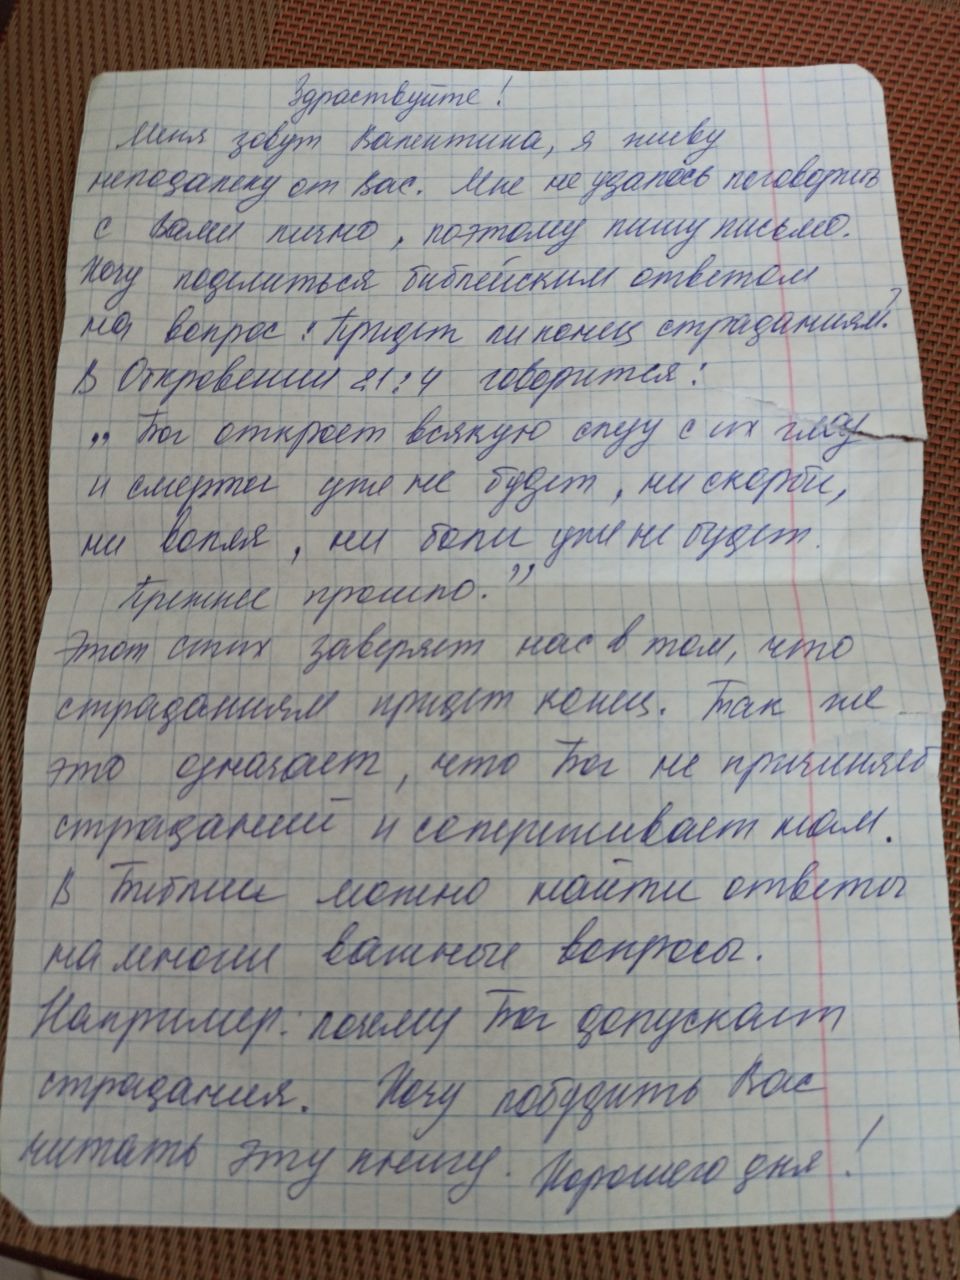 Здраствуйте!
Меня зовут Валентина, я живу
неподалеку от Вас. Мне не удалось поговорить
с Вами лично, поэтому пишу письмо.
Хочу поделиться библейским ответом
на вопрос: Придет ли конец страданиям?
В Откровении 21:4 говорится:
„Бог откроет всякую слезу с их глаз
и смерти уже не будет, ни скорби,
ни вопля, ни боли уже не будет.
Прежнее прошло.”
Этот стих заверяет нас в том, что
страданиям придет конец. Так же
это означает, что Бог не причиняет
страданий и сопереживает нам.
В Библии можно найти ответы
на многие важные вопросы.
Например: почему Бог допускает
страдания. Хочу побудить Вас
читать эту книгу. Хорошего дня!